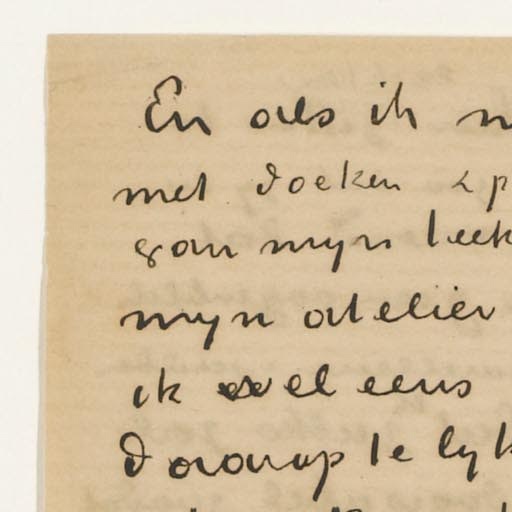 En als ik n
met doeken & p
gan myn teek
myn atelier
ik wel eens
daarop te lyk